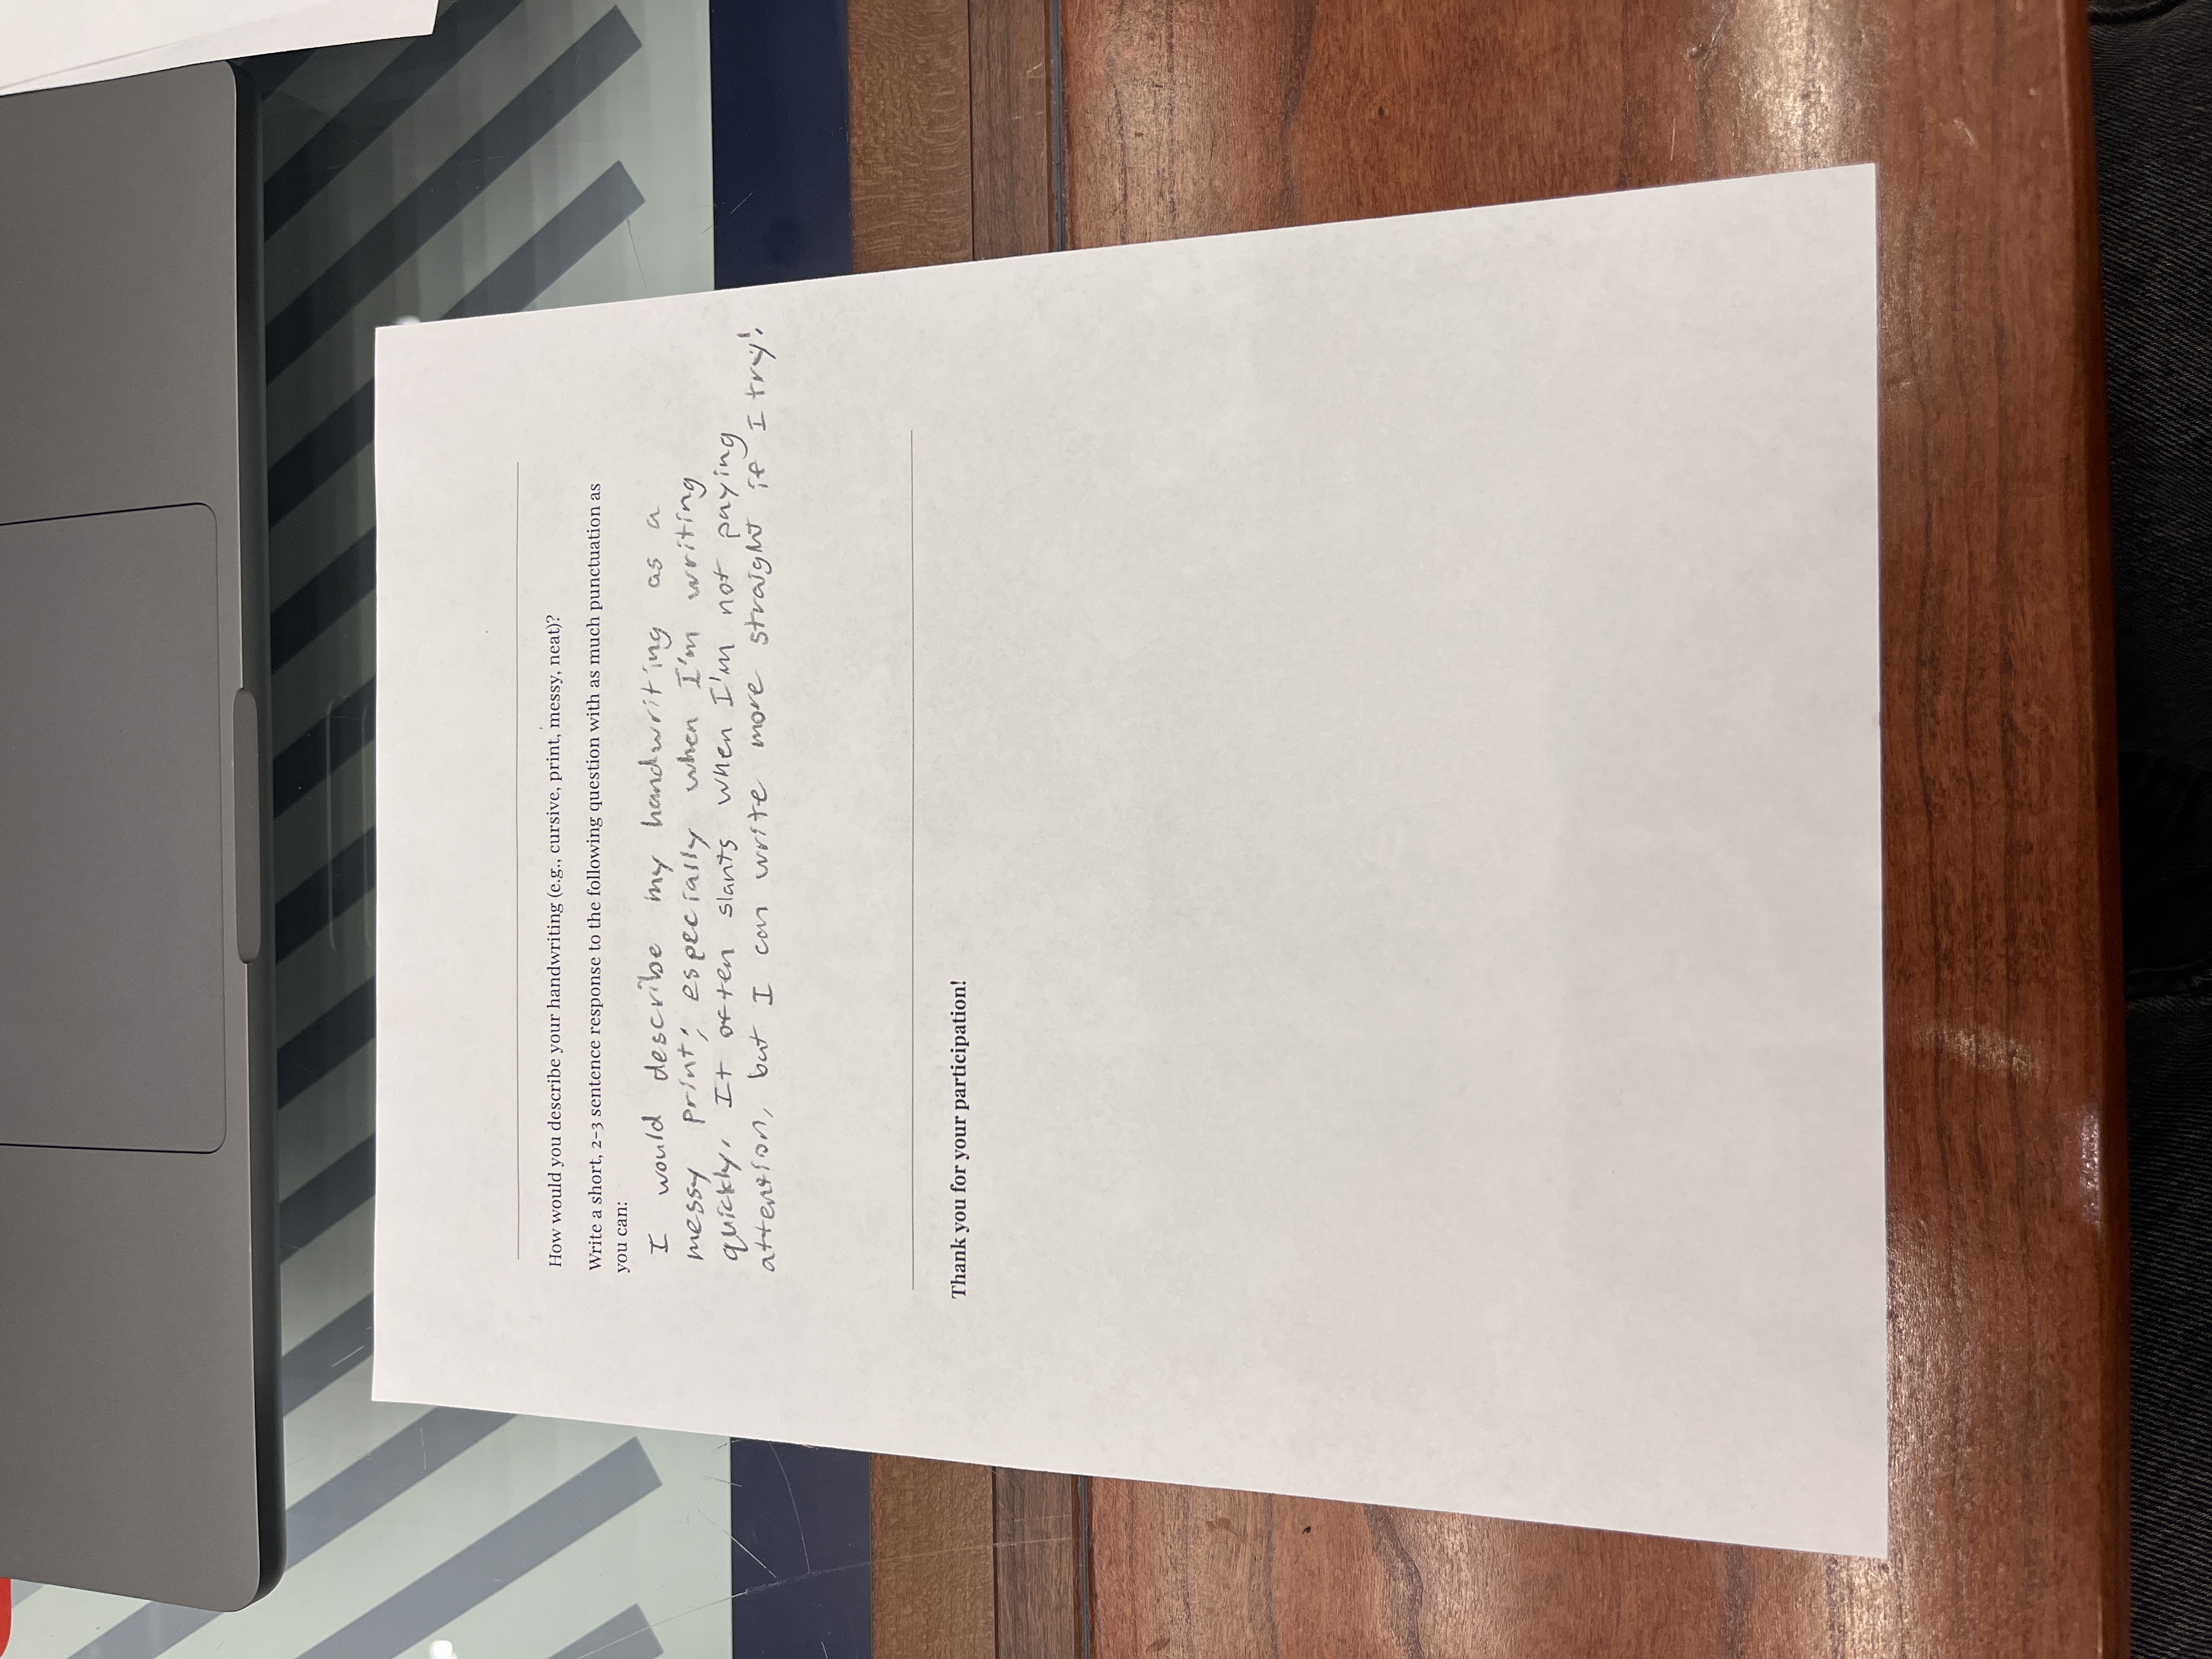 How would you describe your handwriting (e.g., cursive, print, messy, neat)?
Write a short, 2-3 sentence response to the following question with as much punctuation as
you can:
I would describe my handwriting as a
messy print; especially when I'm writing
quickly. It often slants when I'm not paying
attention, but I can write more straight if I try!
Thank you for your participation!